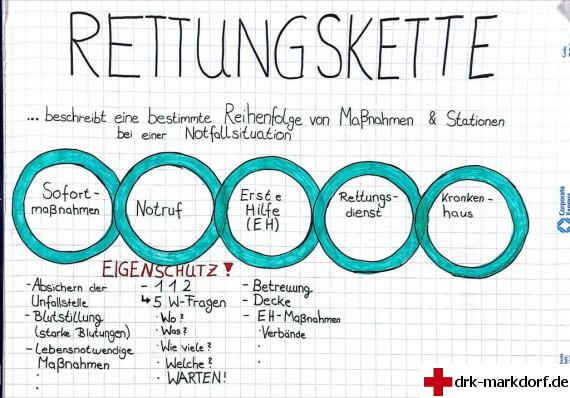 RETTUNGSKETTE
... beschreibt eine bestimmte Reihenfolge von Maßnahmen & Stationen
bei einer Notfallsituation
Sofort-
maßnahmen
Notruf
Erste
Hilfe
(EH)
Rettungs-
dienst
Kranken-
haus
EIGENSCHUTZ!
- Absichern der
Unfallstelle
- Blutstillung
(starke Blutungen)
- Lebensnotwendige
Maßnahmen
- 112
↳ 5 W-Fragen
· Wo?
· Was?
· Wie viele?
· Welche?
· WARTEN!
- Betreuung
- Decke
- EH-Maßnahmen
· Verbände
Corporate
drk-markdorf.de